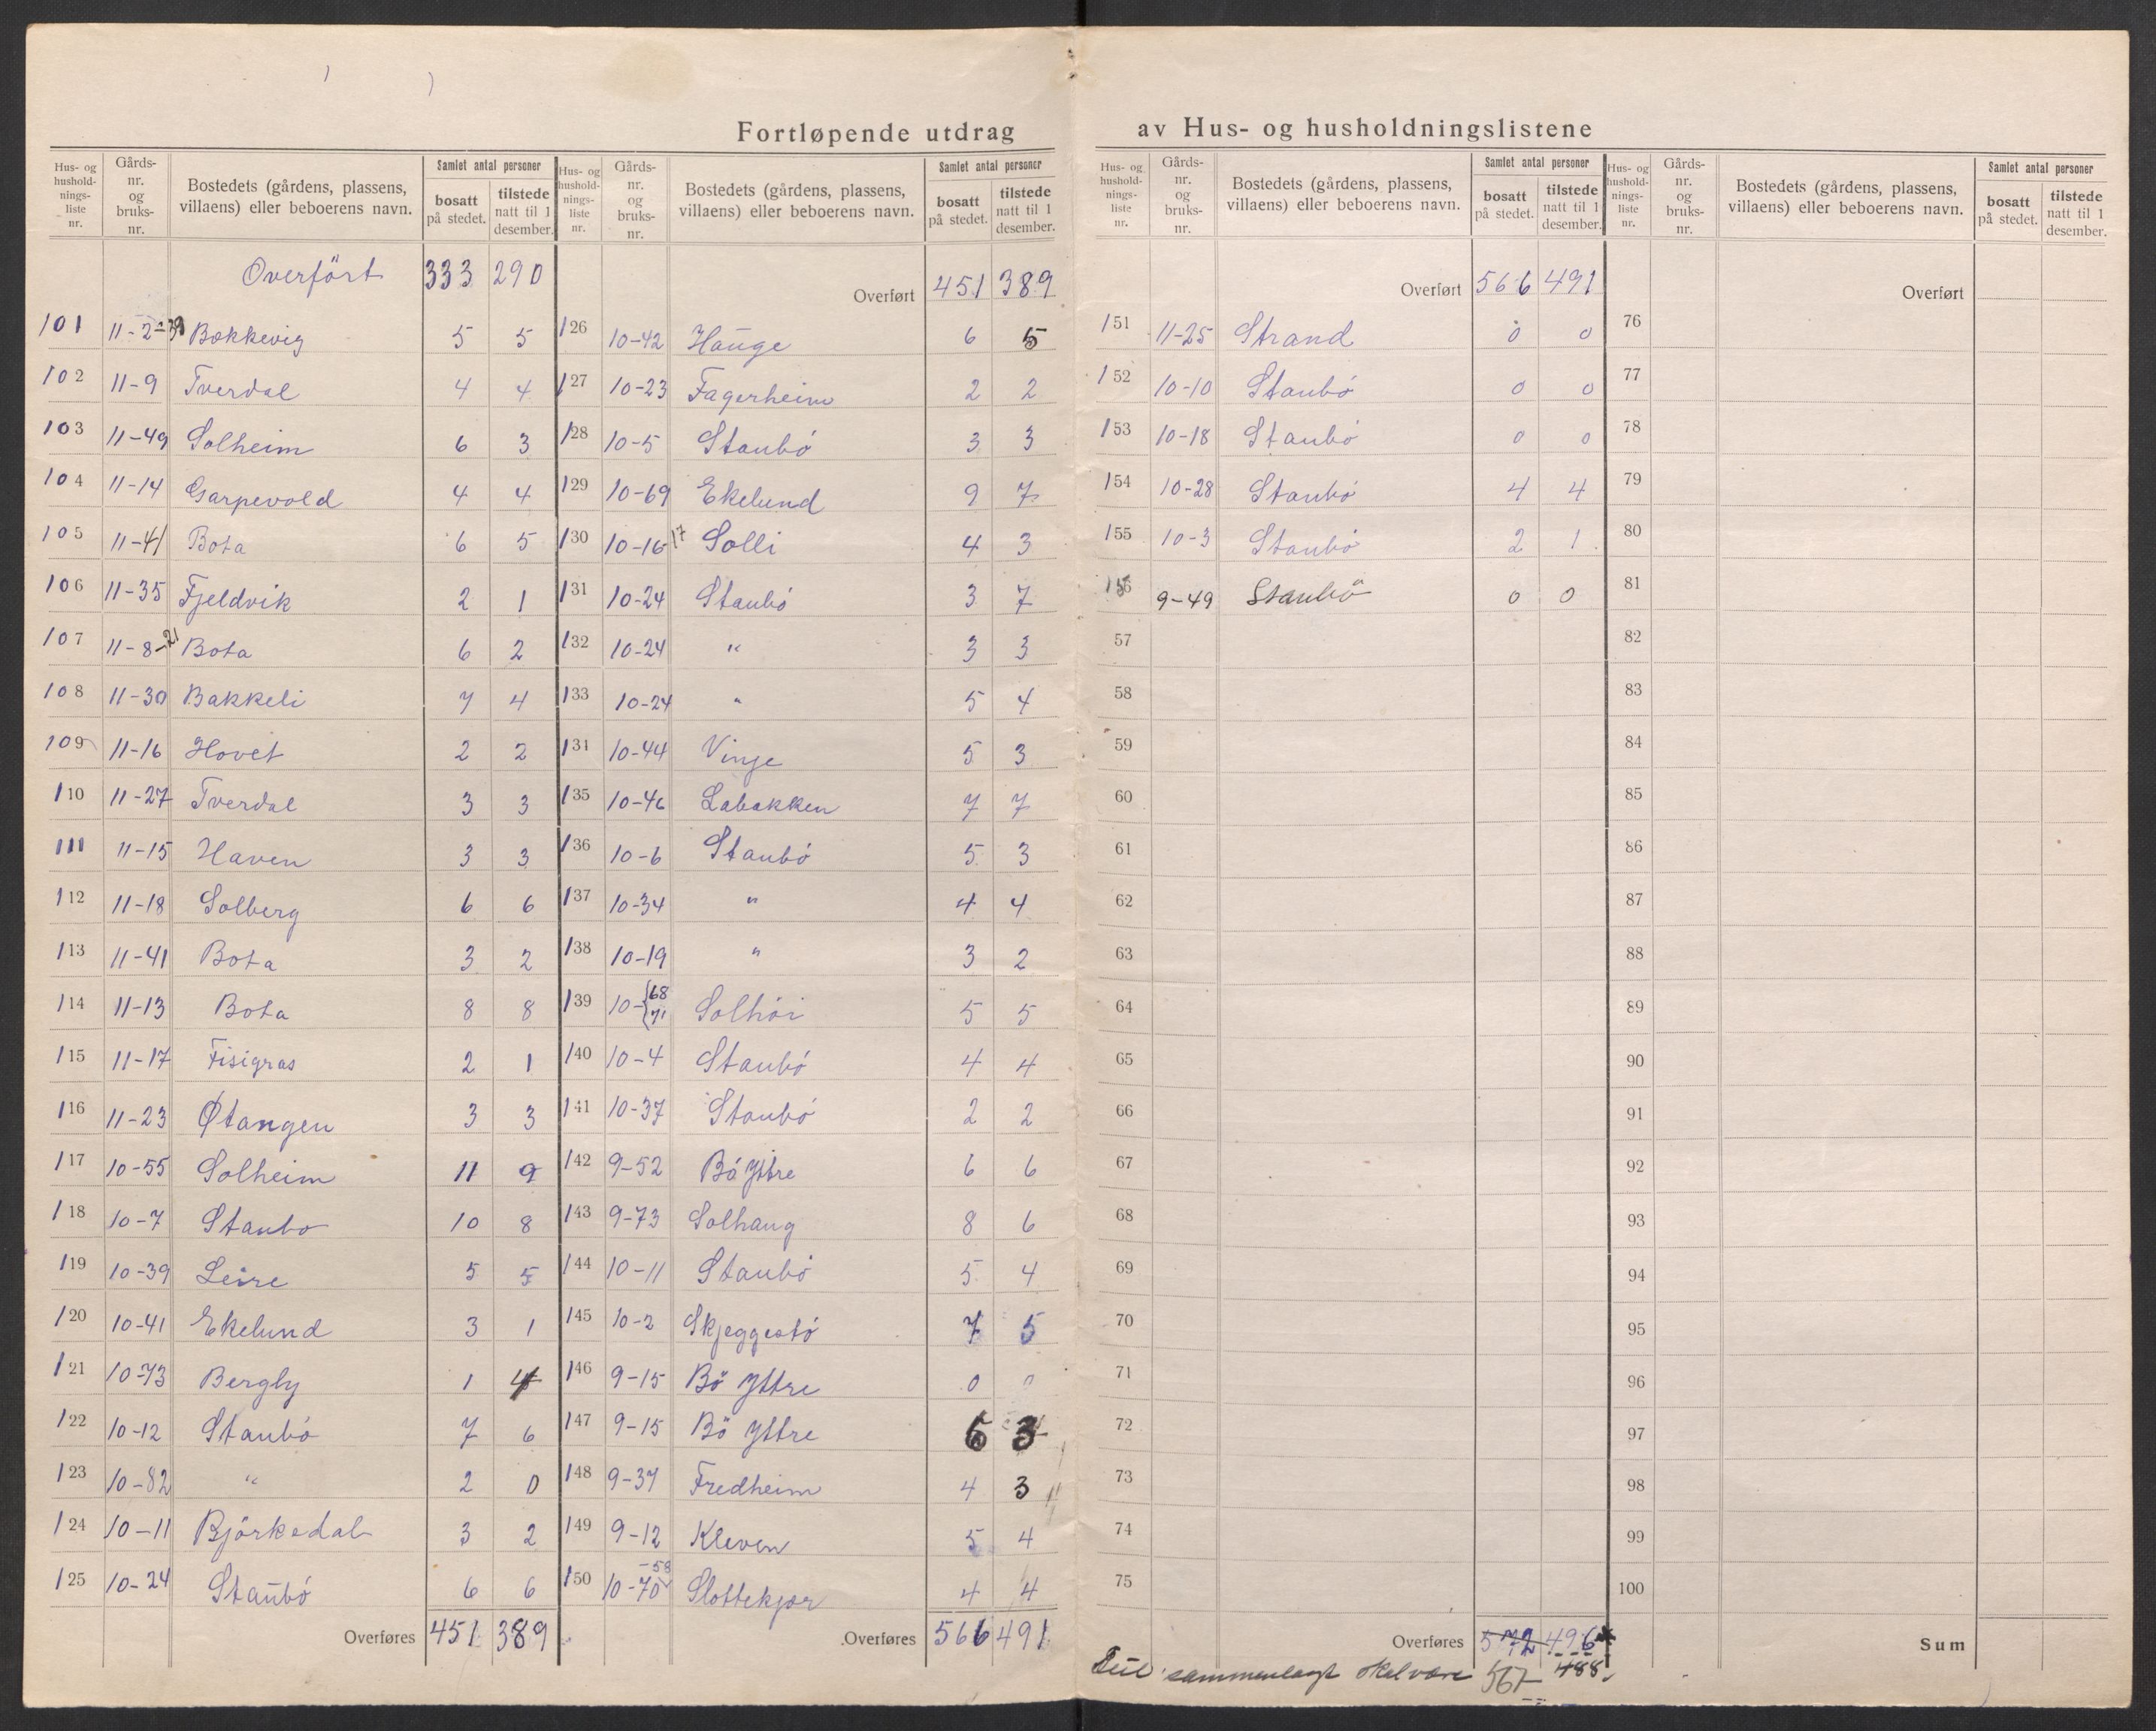 Fortløpende utdrag av Hus- og husholdningslistene
Hus- og husholdnings-liste nr. | Gårds-nr. og bruks-nr. | Bostedets (gårdens, plassens, villaens) eller beboerens navn. | Samlet antal personer: bosatt på stedet. | tilstede natt til 1 desember.
Overført 333 290
101 11-2-39 Bokkevig 5 5
102 11-9 Tverdal 4 4
103 11-49 Solheim 6 3
104 11-14 Garpevold 4 4
105 11-41 Bota 6 5
106 11-35 Fjeldvik 2 1
107 11-8-21 Bota 6 2
108 11-30 Bakkeli 7 4
109 11-16 Hovet 2 2
110 11-27 Tverdal 3 3
111 11-15 Haven 3 3
112 11-18 Solberg 6 6
113 11-41 Bota 3 2
114 11-13 Bota 8 8
115 11-17 Fisigras 2 1
116 11-23 Øtangen 3 3
117 10-55 Solheim 11 9
118 10-7 Staubo 10 8
119 10-39 Leire 5 5
120 10-41 Ekelund 3 1
121 10-73 Bergly 1 4
122 10-12 Staubó 7 6
123 10-82 " 2 0
124 10-11 Björkedal 3 2
125 10-24 Staubó 6 6
Overføres 451 389
Hus- og husholdnings-liste nr. | Gårds-nr. og bruks-nr. | Bostedets (gårdens, plassens, villaens) eller beboerens navn. | Samlet antal personer: bosatt på stedet. | tilstede natt til 1 desember.
Overført 451 389
126 10-42 Hauge 6 5
127 10-23 Fagerheim 2 2
128 10-5 Staubó 3 3
129 10-69 Ekelund 9 7
130 10-16 17 Solli 4 3
131 10-24 Staubó 3 7
132 10-24 " 3 3
133 10-24 " 5 4
131 10-44 Vinje 5 3
135 10-46 Labakken 7 7
136 10-6 Staubó 5 3
137 10-34 " 4 4
138 10-19 " 3 2
139 10-{68 71 Solhöi 5 5
140 10-4 Staubó 4 4
141 10-37 Staubó 2 2
142 9-52 Bó Yttre 6 6
143 9-73 Solhaug 8 6
144 10-11 Staubó 5 4
145 10-2 Skjeggestó 7 5
146 9-15 Bö Yttre 0 0
147 9-15 Bö Yttre 6 3
148 9-37 Fredheim 4 3
149 9-12 Kleven 5 4
150 10-70-58 Slottekjær 4 4
Overføres 566 491
Hus- og husholdnings-liste nr. | Gårds-nr. og bruks-nr. | Bostedets (gårdens, plassens, villaens) eller beboerens navn. | Samlet antal personer: bosatt på stedet. | tilstede natt til 1 desember.
Overført 566 491
151 11-25 Strand 0 0
152 10-10 Staubó 0 0
153 10-18 Staubó 0 0
154 10-28 Staubó 4 4
155 10-3 Staubó 2 1
156 9-49 Staubö 0 0
57
58
59
60
61
62
63
64
65
66
67
68
69
70
71
72
73
74
75
Overføres 572 496
sammenlagt skal være 567 488
Hus- og husholdnings-liste nr. | Gårds-nr. og bruks-nr. | Bostedets (gårdens, plassens, villaens) eller beboerens navn. | Samlet antal personer: bosatt på stedet. | tilstede natt til 1 desember.
Overført
76
77
78
79
80
81
82
83
84
85
86
87
88
89
90
91
92
93
94
95
96
97
98
99
100
Sum